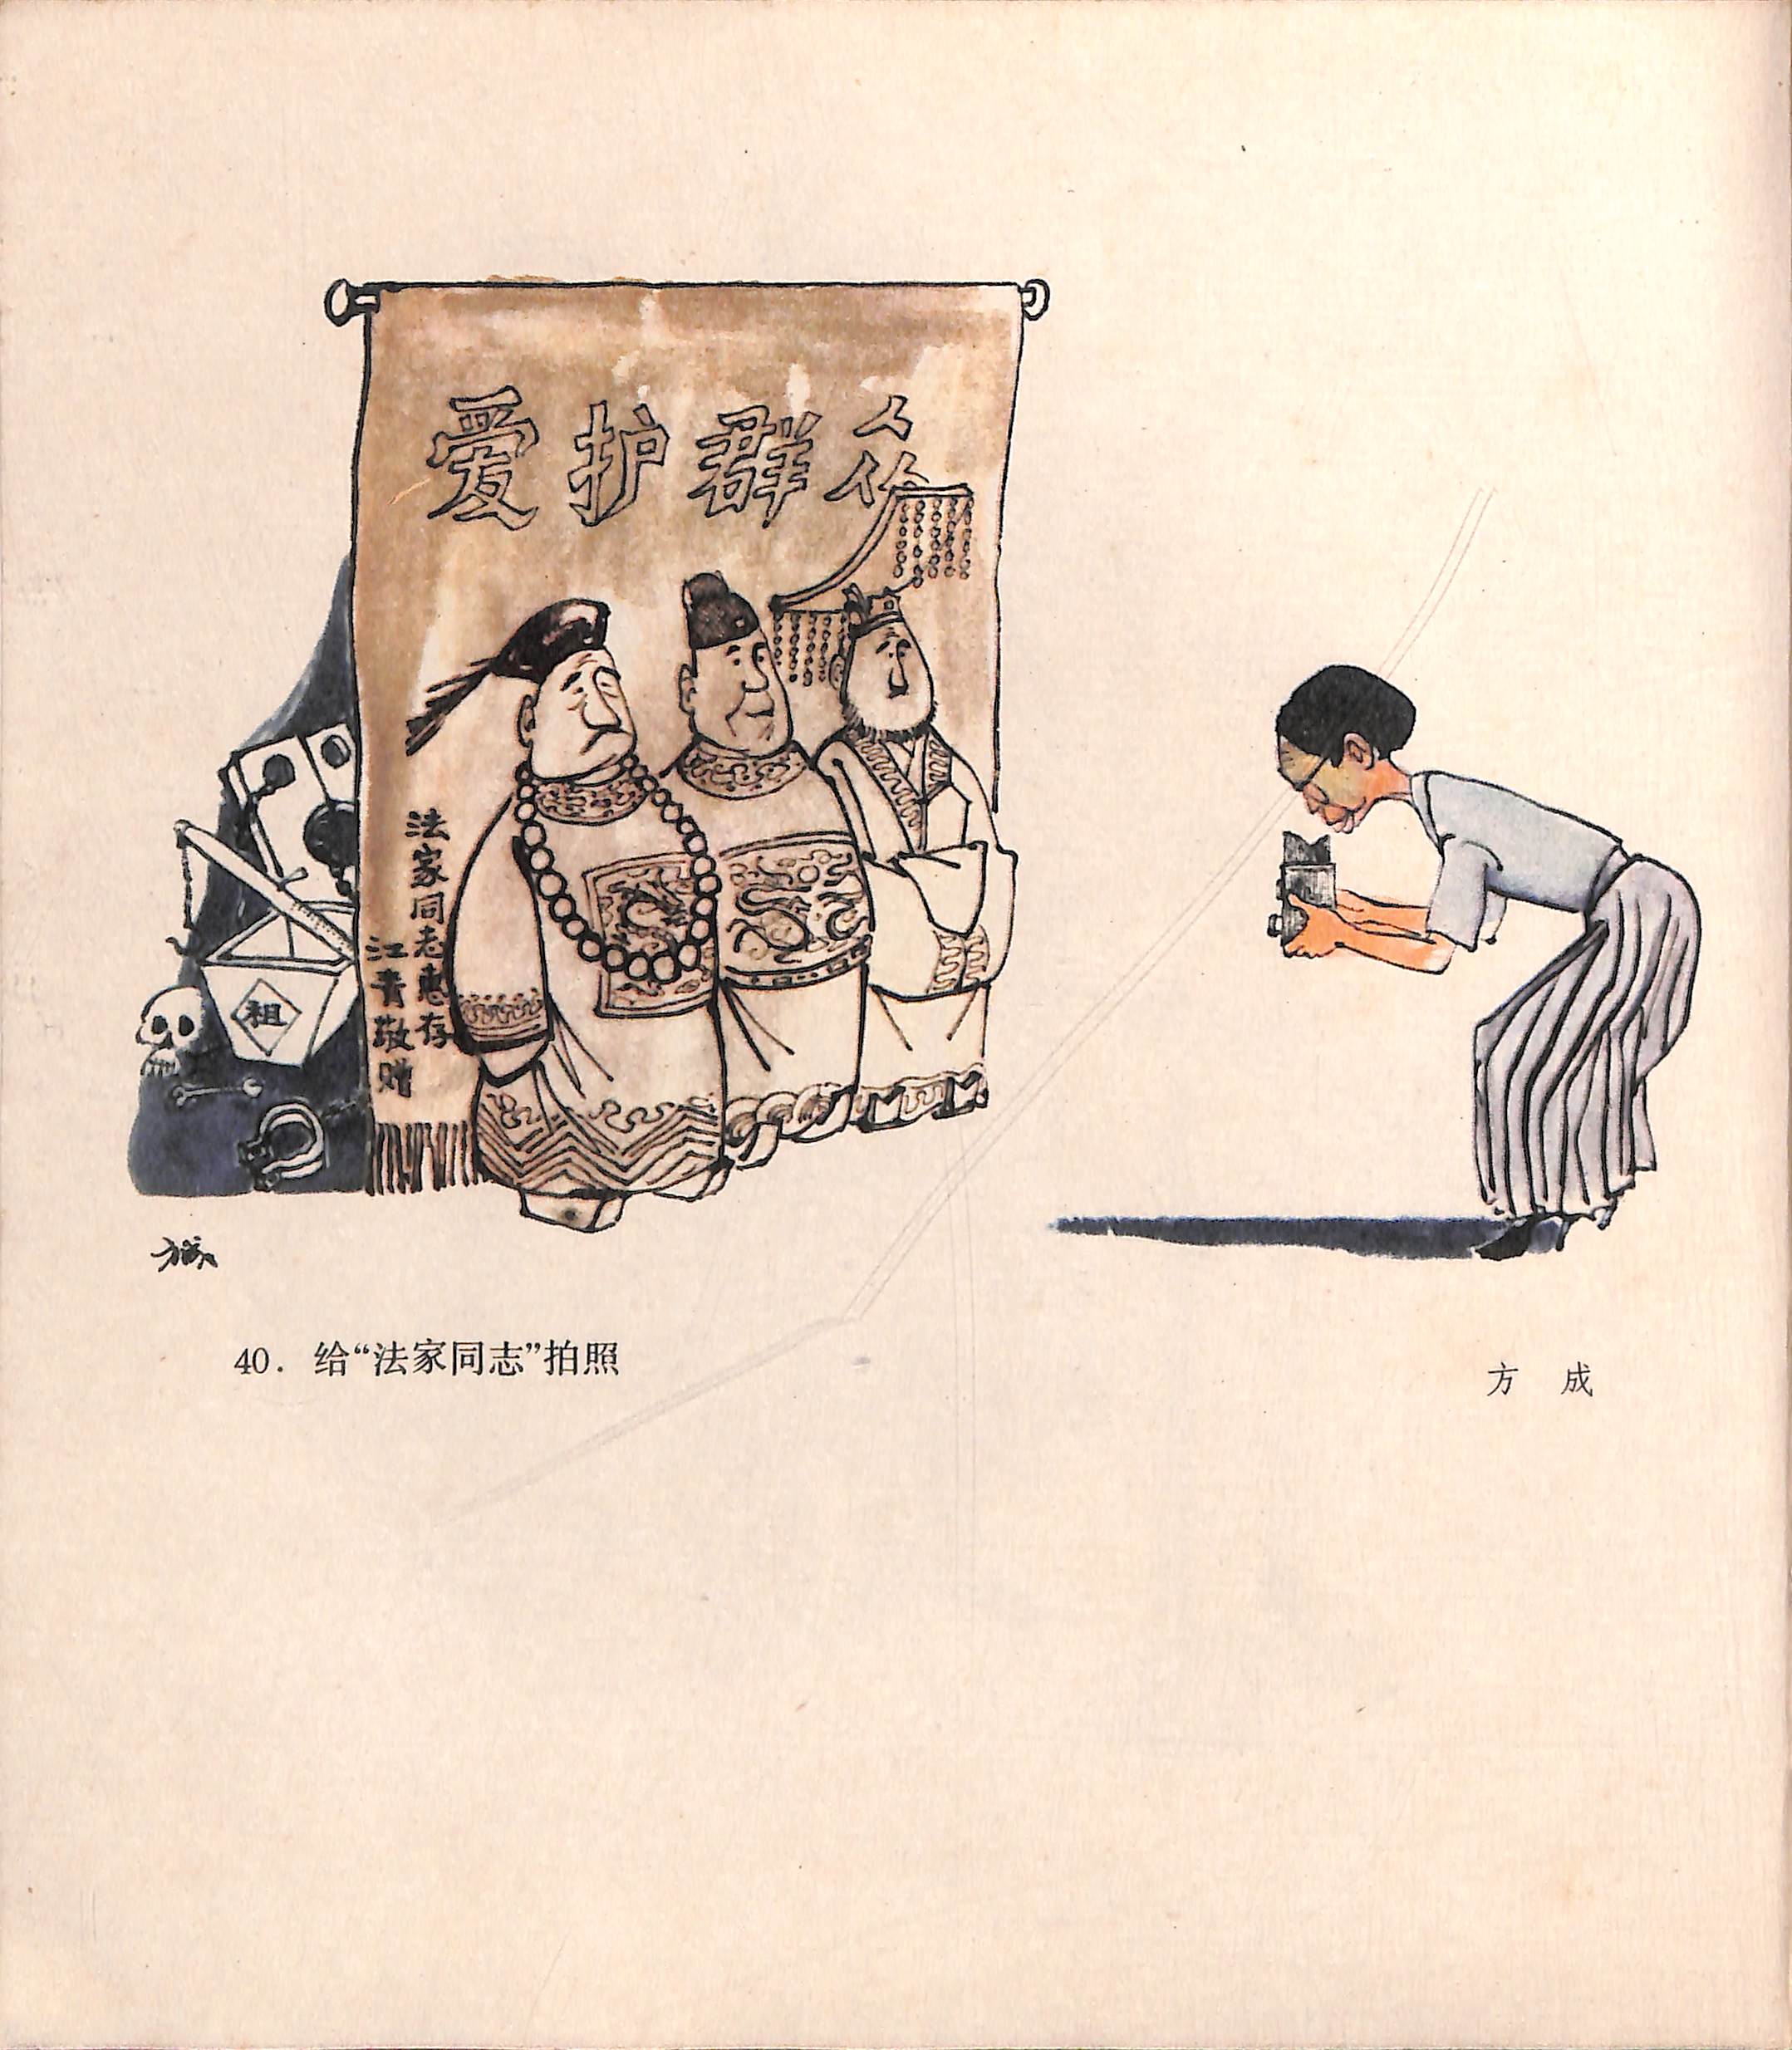 爱护群众
法家同志惠存
江青敬赠
祖
方成
40. 给“法家同志”拍照
方 成